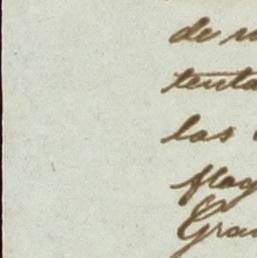 de
tenta
las
flag
Gran